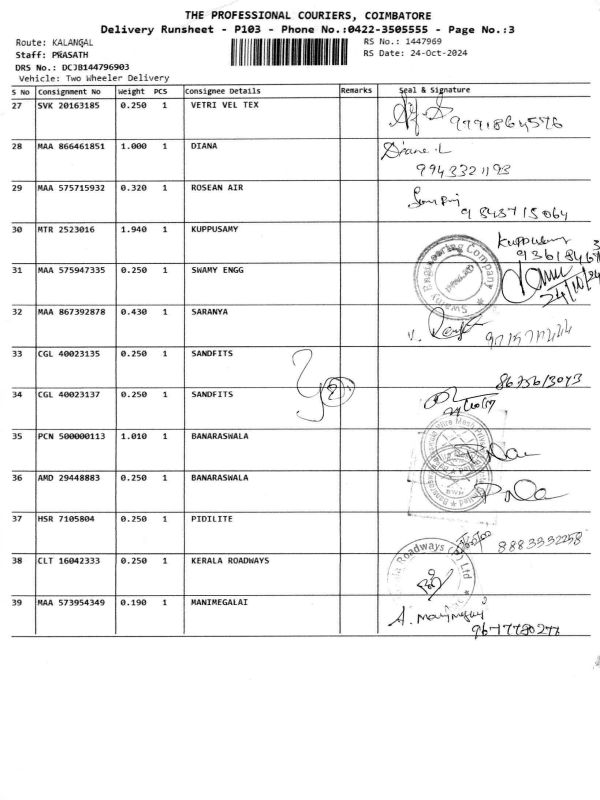 THE PROFESSIONAL COURIERS, COIMBATORE
Delivery Runsheet - P103 - Phone No.:0422-3505555 - Page No.:3
Route: KALANGAL RS No.: 1447969
Staff: PRASATH RS Date: 24-Oct-2024
DRS No.: DCJB144796903
Vehicle: Two Wheeler Delivery
S No Consignment No Weight PCS Consignee Details Remarks Seal & Signature
27 SVK 20163185 0.250 1 VETRI VEL TEX
28 MAA 866461851 1.000 1 DIANA Diane.L
9943321193
29 MAA 575715932 0.320 1 ROSEAN AIR
30 MTR 2523016 1.940 1 KUPPUSAMY Kuppusamy
31 MAA 575947335 0.250 1 SWAMY ENGG Swamy Engineering Company
24/10/24
32 MAA 867392878 0.430 1 SARANYA
33 CGL 40023135 0.250 1 SANDFITS
34 CGL 40023137 0.250 1 SANDFITS
35 PCN 500000113 1.010 1 BANARASWALA
36 AMD 29448883 0.250 1 BANARASWALA
37 HSR 7105804 0.250 1 PIDILITE 8883332258
38 CLT 16042333 0.250 1 KERALA ROADWAYS Roadways Ltd
39 MAA 573954349 0.190 1 MANIMEGALAI